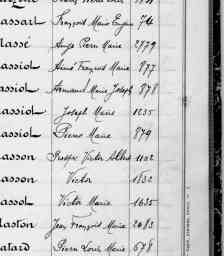 assart François Marie Eugène 74
Massé Ange Pierre Marie 2779
assiol Aimé François Marie 877
assiol Armand Marie Joseph 878
assiol Joseph Marie 1235
assiol Pierre Marie 879
asson Victor Albert 1102
asson Victor 1832
assol Victor Marie 1635
aston Jean François Marie 2083
atard Pierre Louis Marie 678